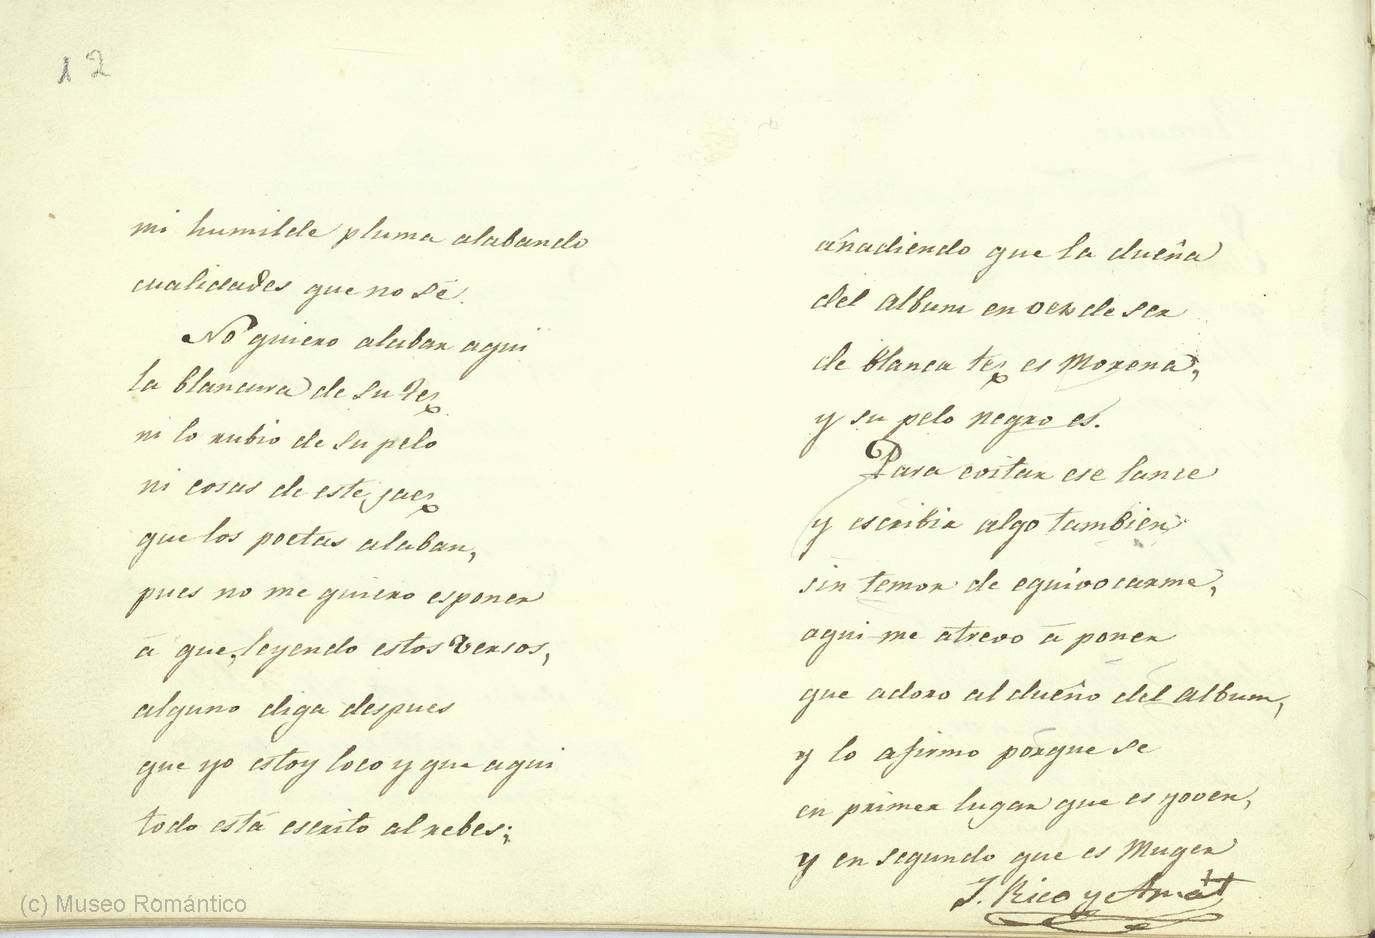 12
mi humilde pluma alabando
cualidades que no sé.
No quiero alabar aqui
la blancura de su tez
ni lo rubio de su pelo
ni cosas de este jaez
que los poetas alaban,
pues no me quiero esponer
á que, leyendo estos versos,
alguno diga despues
que yo estoy loco y que aqui
todo está escrito al rebes;
añadiendo que la dueña
del album en vez de ser
de blanca tez es morena,
y su pelo negro es.
Para evitar ese lance
y escribir algo tambien
sin temor de equivocarme,
aqui me atrevo á poner
que adoro al dueño del album,
y lo afirmo porque se
en primer lugar que es yoven,
y en segundo que es muger
J. Rico y Amát
(c) Museo Romántico